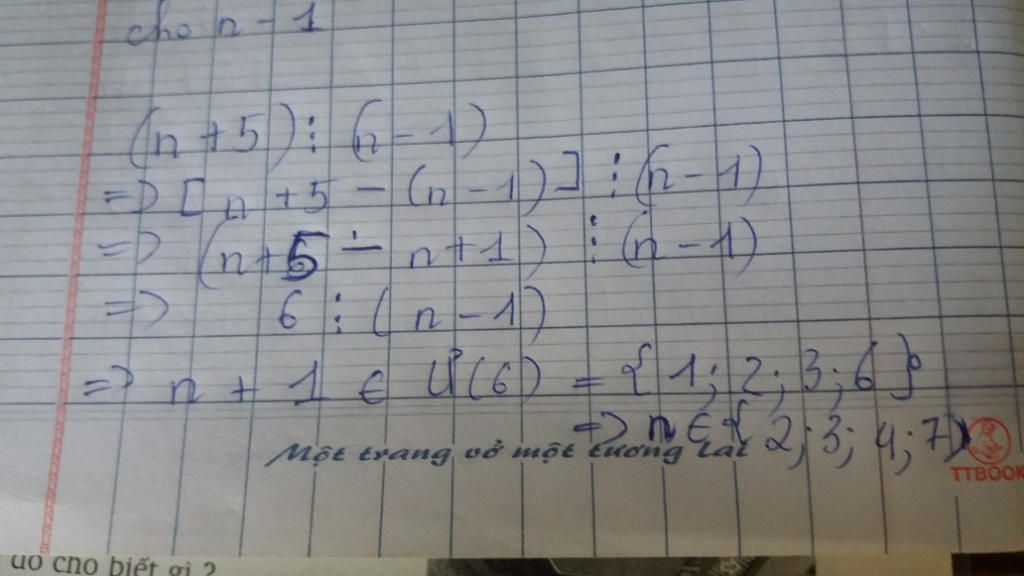 cho n - 1
(n + 5) ⋮ (n - 1)
=> [n + 5 - (n - 1)] ⋮ (n - 1)
=> (n + 5 - n + 1) ⋮ (n - 1)
=> 6 ⋮ (n - 1)
=> n + 1 ∈ Ư(6) = {1; 2; 3; 6}
=> n ∈ {2; 3; 4; 7}
Một trang vở một tương lai
TTBOOK
cho biết gì ?